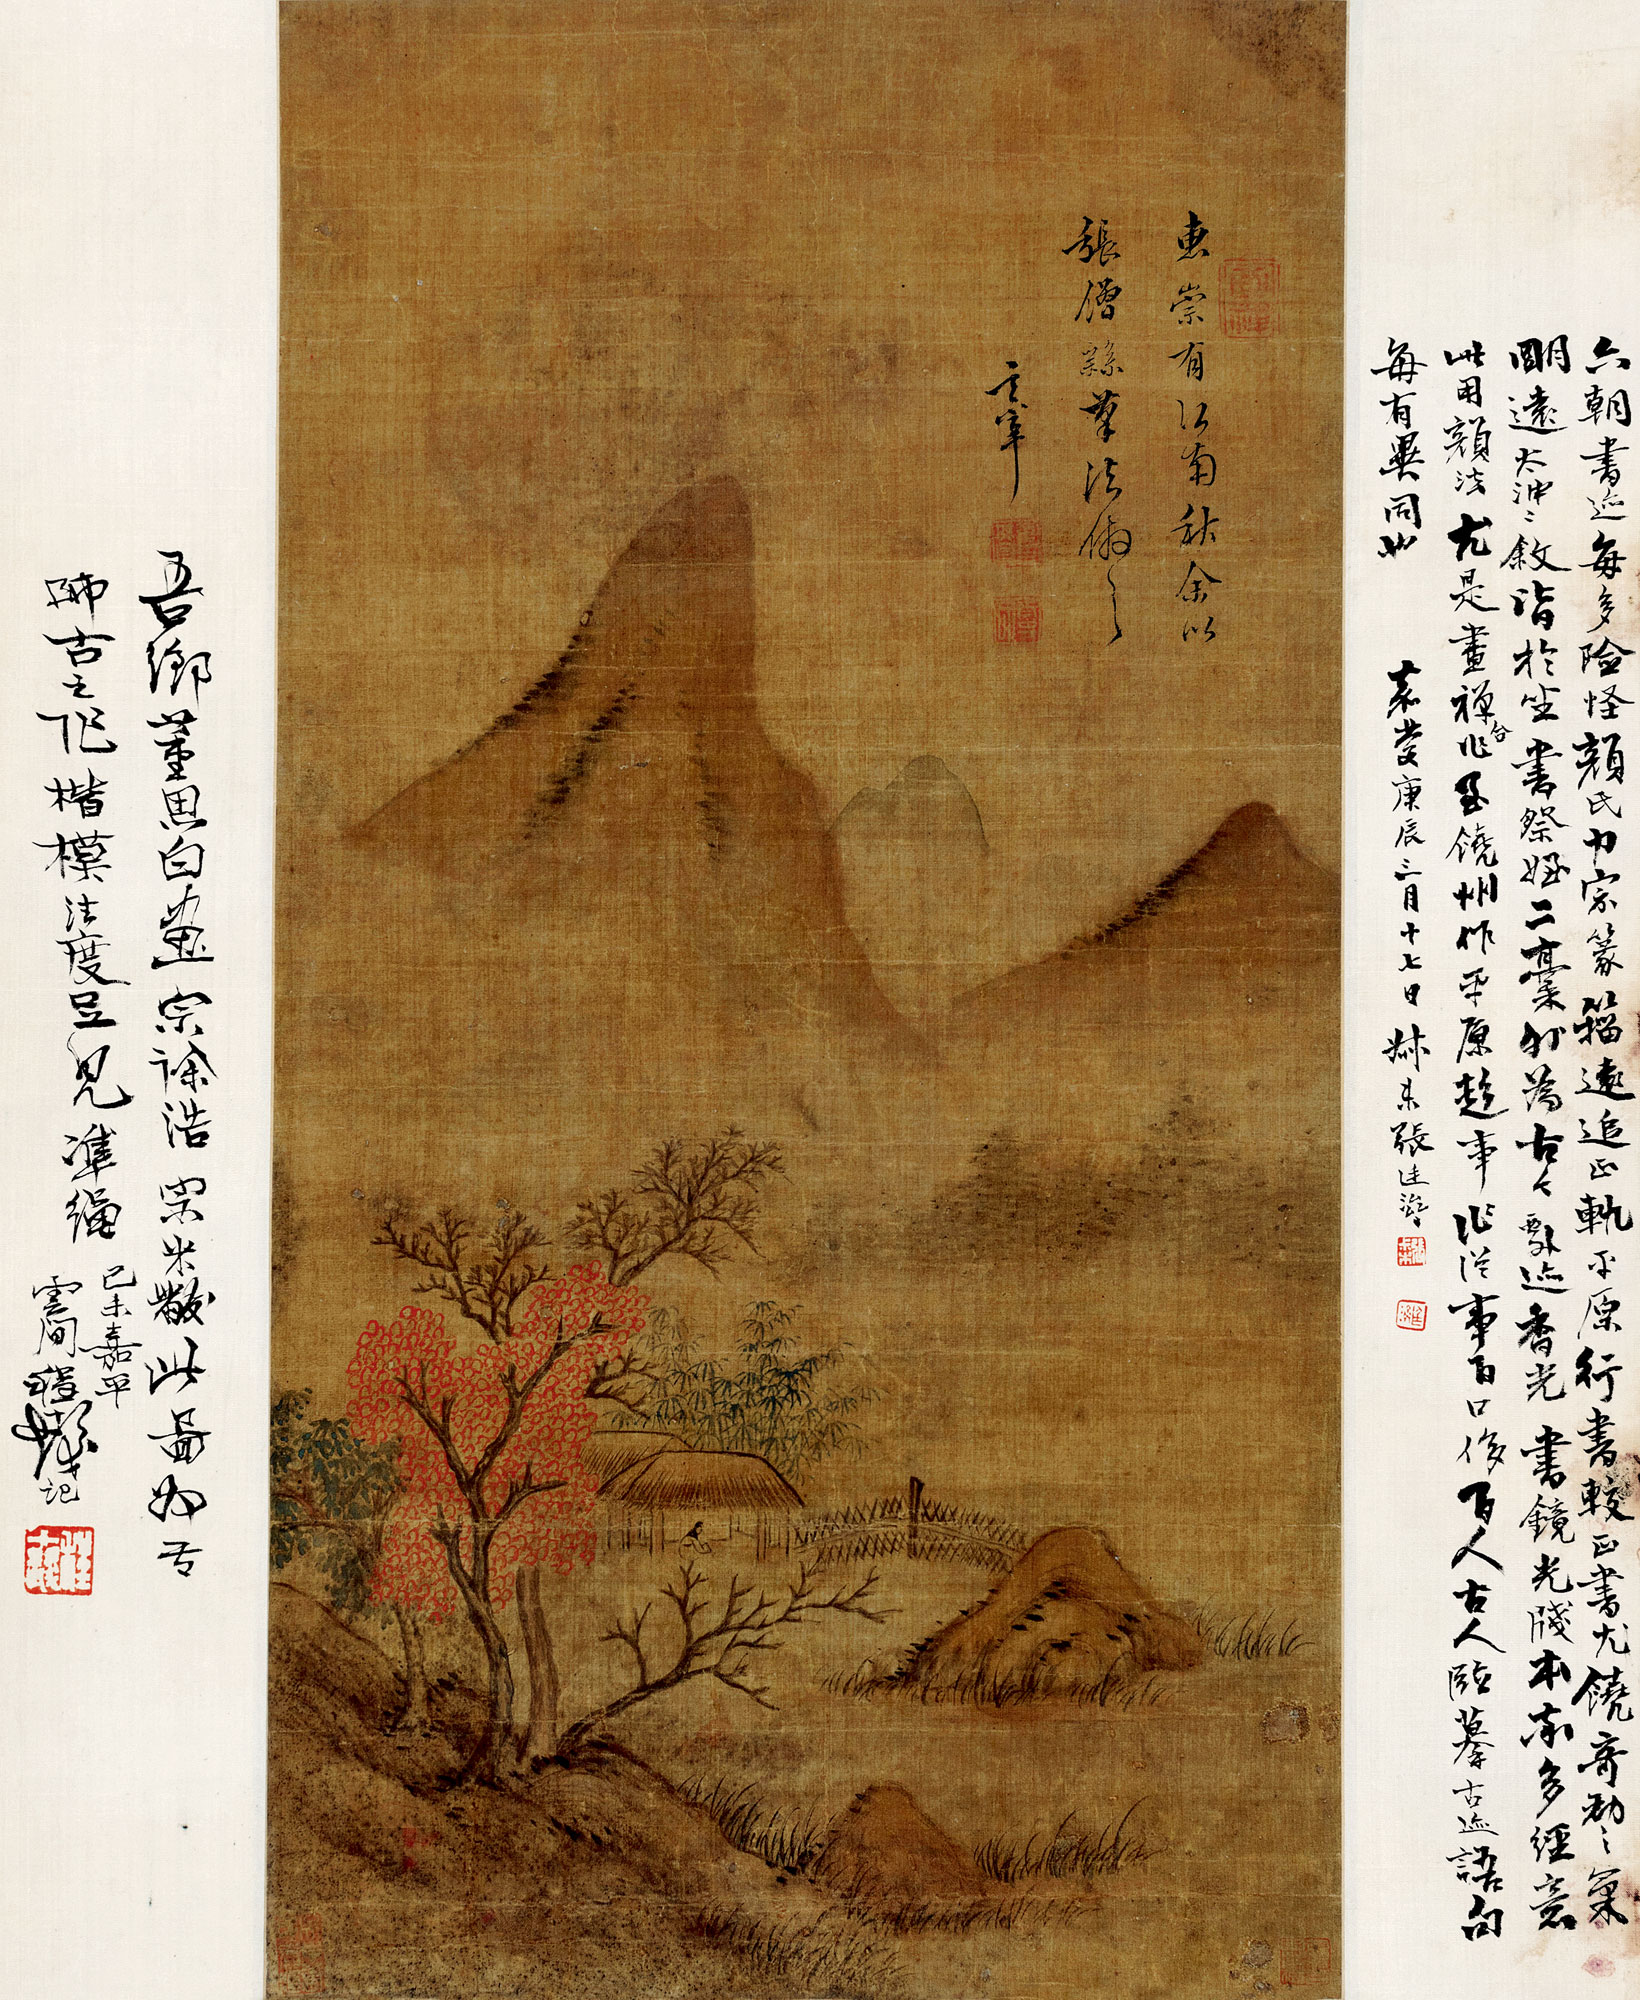 惠崇有江南秋余以
張僧繇筆法倣之
玄宰
六朝書迹每多險怪顔氏力宗篆籀遠追正軌平原行書較正書尤饒奇勁之氣
明遠太沖二敘皆於坐書祭姪二稾外為古今劇迹香光書鏡光殘本亦多經意
此用顔法尤是畫禪合作至饒州作平原起事作從事百口作百人古人臨摹古迹語句
每有異同也
庚辰三月十七日 叔未張廷濟
吾鄉董思白畫宗徐浩宋米黻此圖為古
師古之作楷模法度足見準繩
己未嘉平
雲間程十髮記